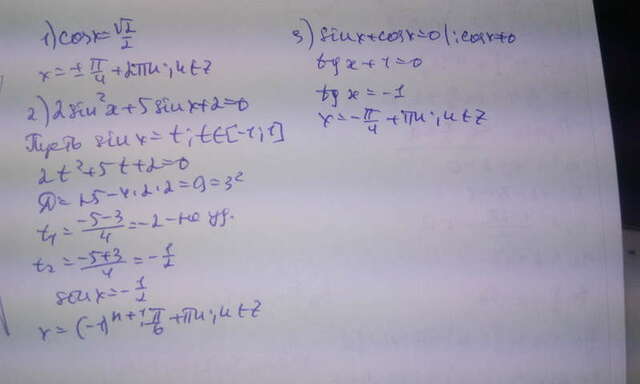 1) cos x = √2/2
x = ± π/4 + 2πn; n ∈ Z
2) 2 sin²x + 5 sin x + 2 = 0
Пусть sin x = t; t ∈ [-1; 1]
2t² + 5t + 2 = 0
D = 25 - 4·2·2 = 9 = 3²
t₁ = (-5-3)/4 = -2 - не уд.
t₂ = (-5+3)/4 = -1/2
sin x = -1/2
x = (-1)ⁿ⁺¹ · π/6 + πn; n ∈ Z
3) sin x + cos x = 0 |: cos x ≠ 0
tg x + 1 = 0
tg x = -1
x = -π/4 + πn; n ∈ Z